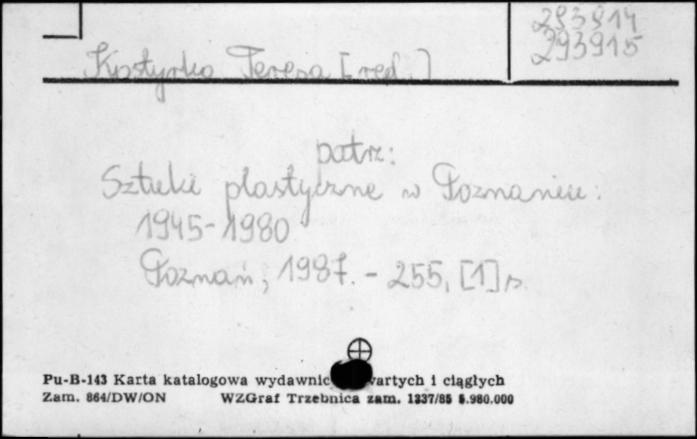 293914
293915
Kostyrko Teresa [red.]
patrz:
Sztuki plastyczne w Poznaniu:
1945-1980
Poznań, 1987. - 255, [1] s.
Pu-B-143 Karta katalogowa wydawnic wartych i ciągłych
Zam. 864/DW/ON WZGraf Trzebnica zam. 1337/85 5.980.000